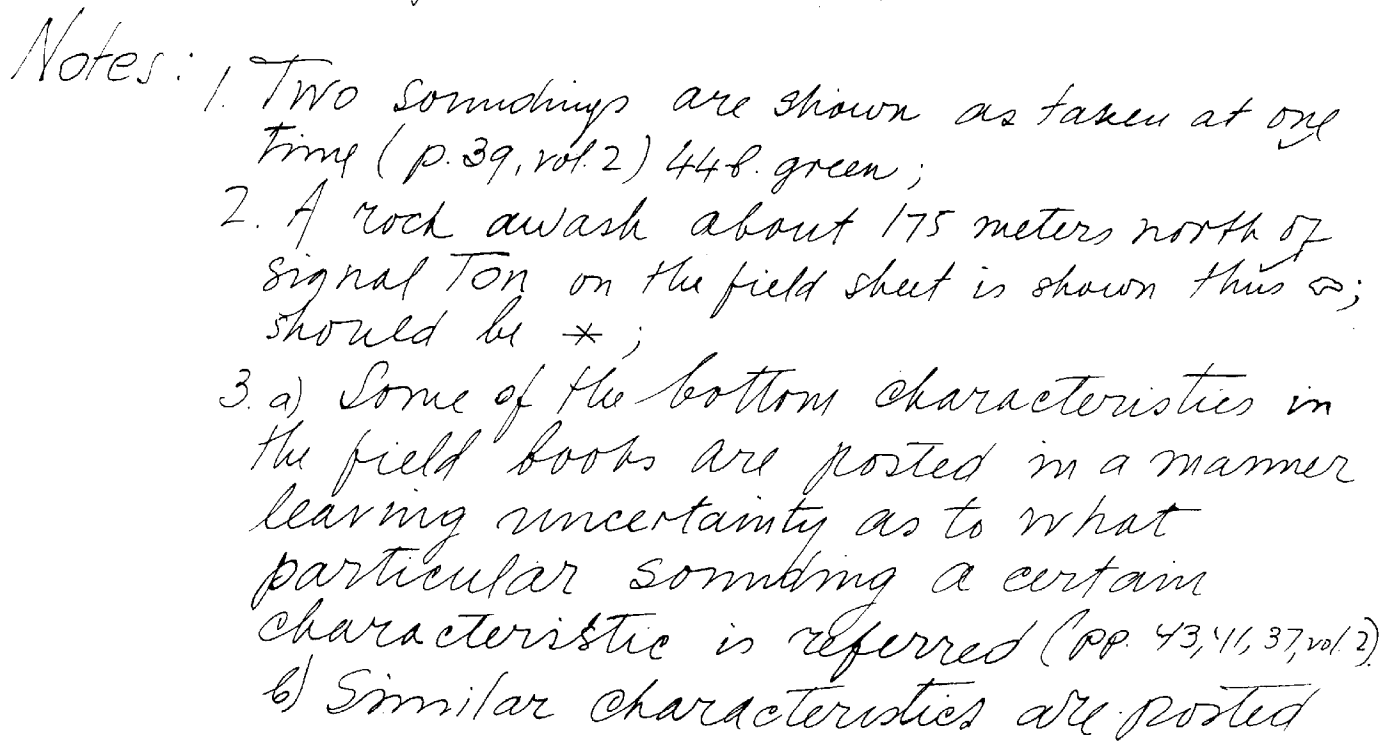 Notes: 1. Two soundings are shown as taken at one
time (p. 39, vol. 2) 44b. green;
2. A rock awash about 175 meters north of
signal Ton on the field sheet is shown thus ;
should be * ;
3. a) Some of the bottom characteristics in
the field books are posted in a manner
leaving uncertainty as to what
particular sounding a certain
characteristic is referred (pp. 43, 41, 37, vol. 2).
b) Similar characteristics are posted